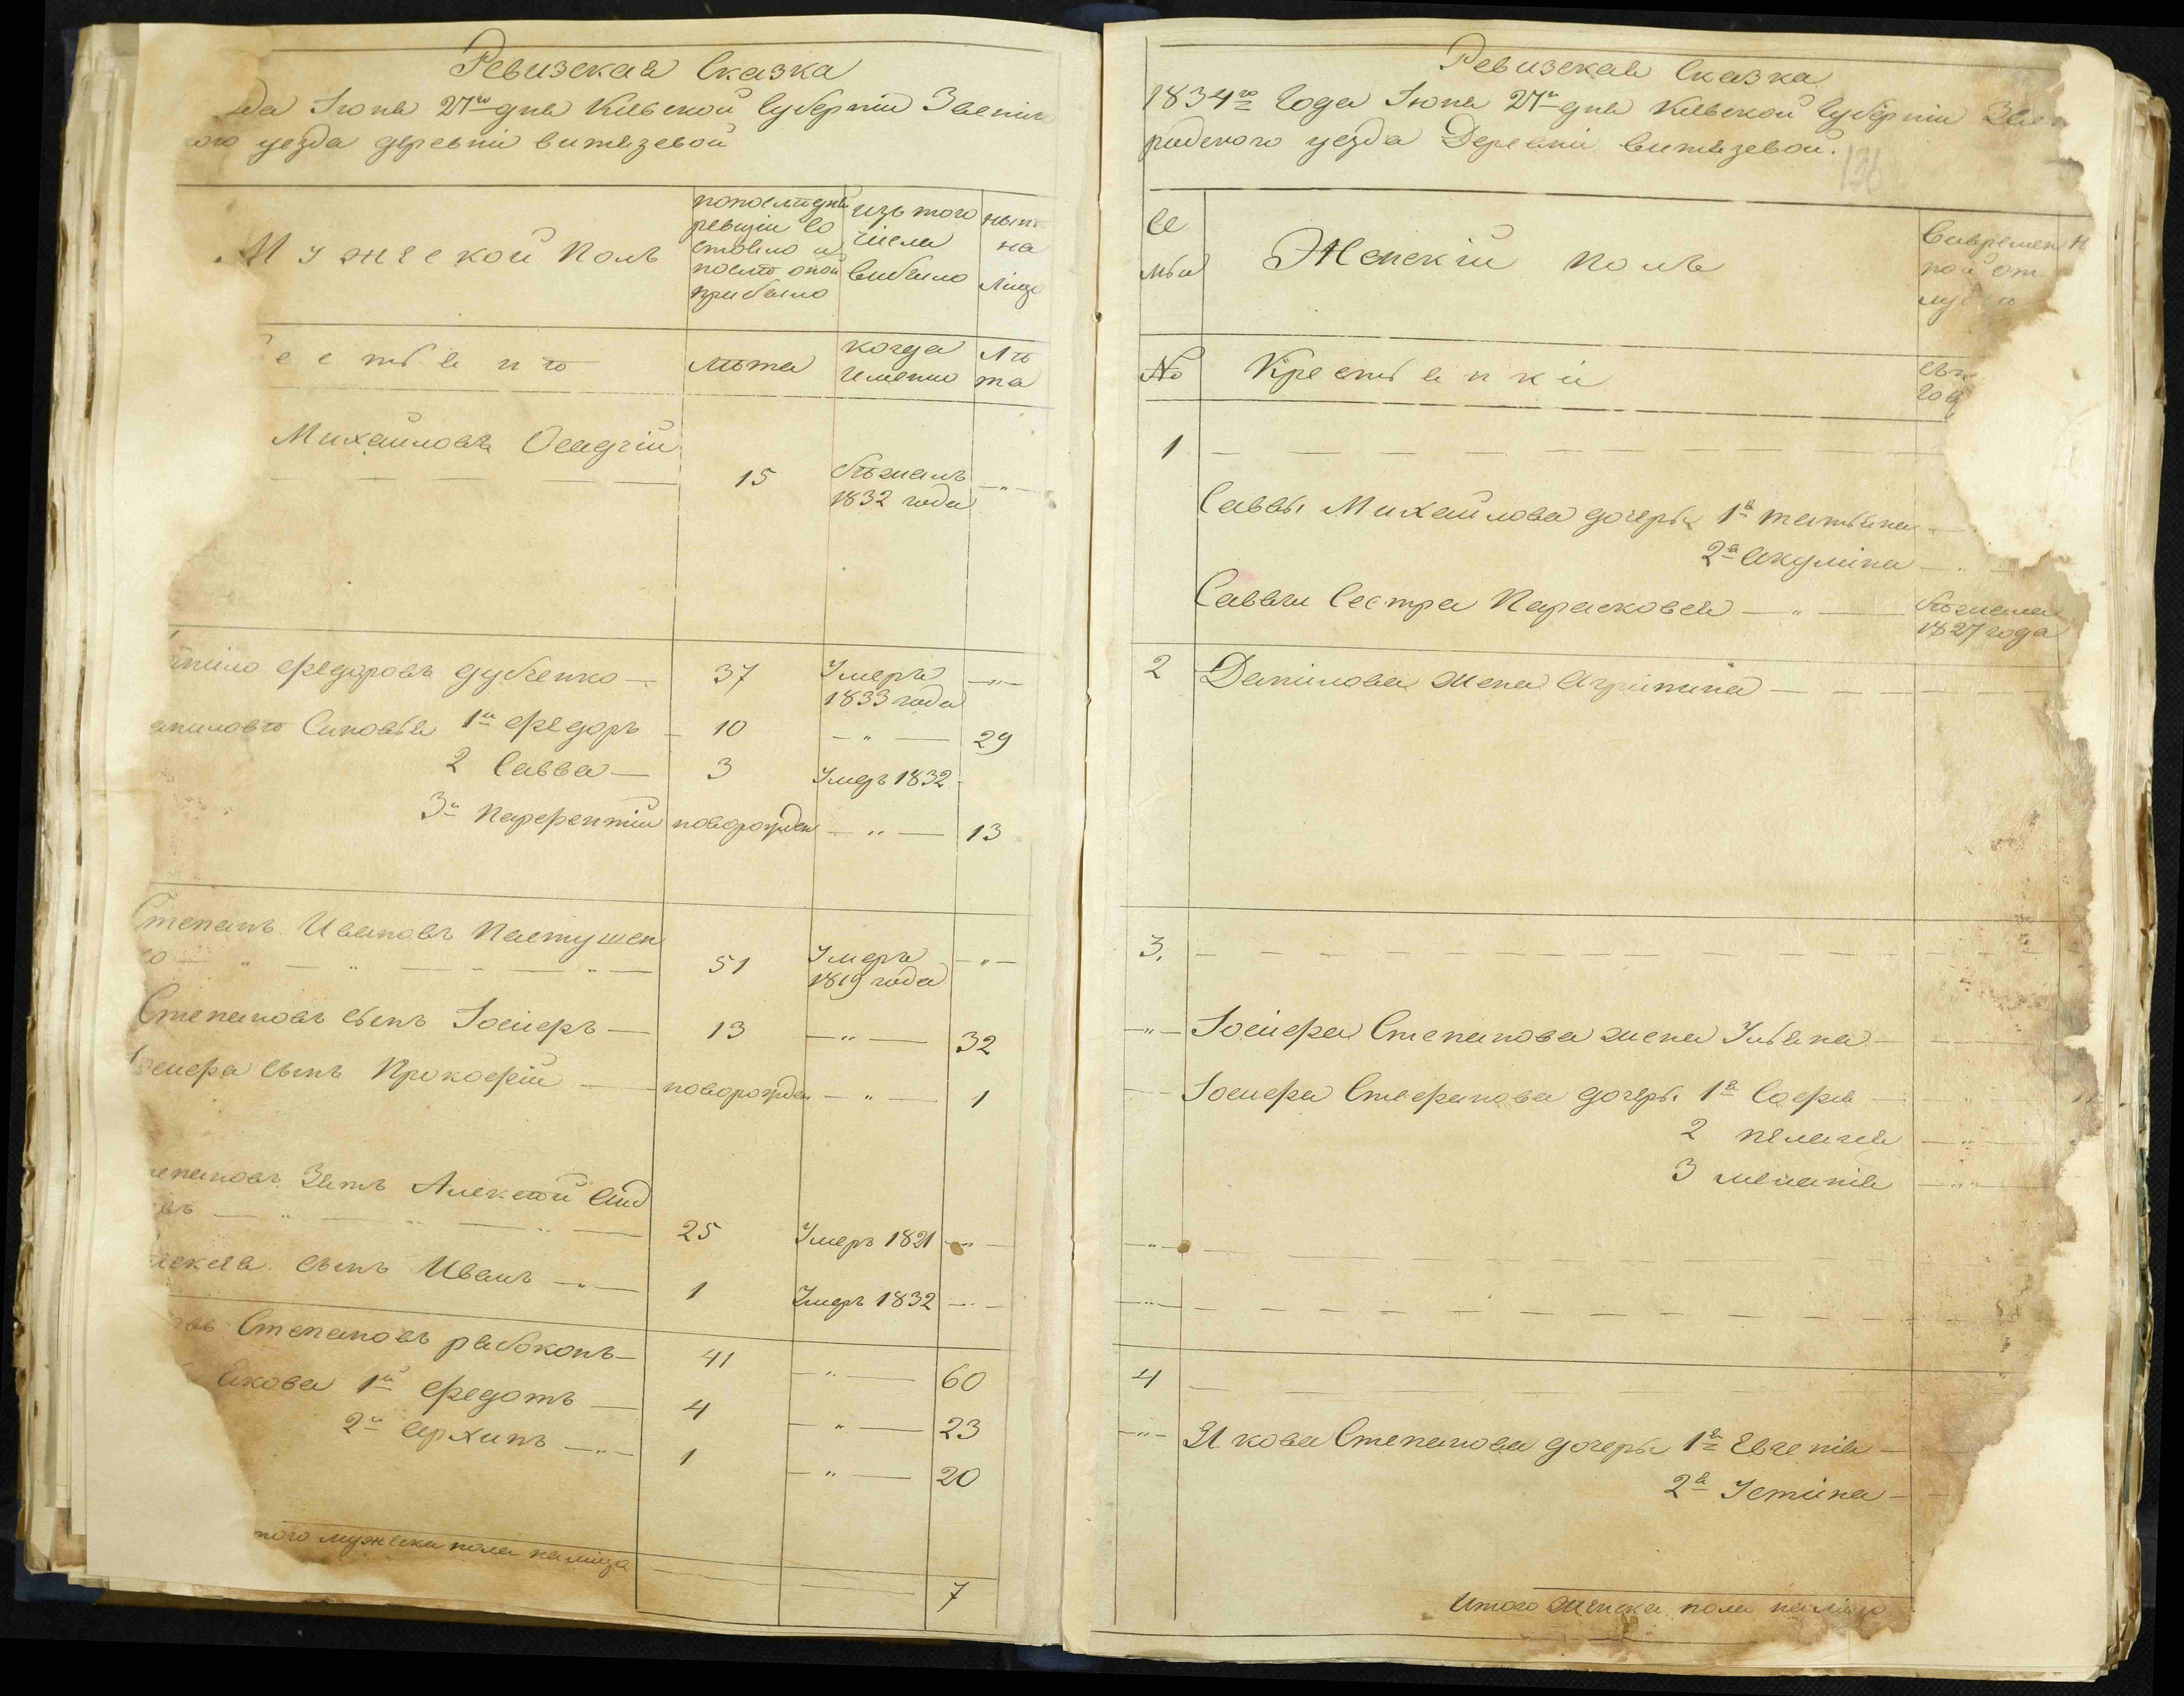 Ревизская Сказка
да Іюня 27го дня Киевской Губерніи Звенiго
ого уезда деревни витязевой
Мужеской Полъ
попоследней
ревизіи со
стояло и
после оной
прибыло
изъ того
числа
выбыло
ныне
на
лицо
естьяне
лета
когда
именно
Ле
та
Михайловъ Осадчій
15
бежалъ
1832 года
—"—
нило Федоровъ дубенко —
37
Умеръ
1833 года
—"—
аниловы Синовья 1й Федоръ
10
—"—
29
2 Савва —
3
Умеръ 1832
3й Парфентій
новорожден
—"—
13
Степанъ Ивановъ Пастушен
ко
51
Умеръ
1819 года
—"—
Степановъ сынъ Іосифъ —
13
—"—
32
осифа сынъ Прокофій —
новорожден
—"—
1
тепановъ Зять Алексей Сид
въ
25
Умеръ 1821
—"—
лексея сынъ Иванъ —"—
1
Умеръ 1832
—"—
овъ Степановъ рябоконъ —
41
—"—
60
Якова 1й Федотъ —
4
—"—
23
2й Архипъ —"—
1
—"—
20
того мужеска пола налицо
7
Ревизская Сказка
1834го Года Іюня 27го дня Киевской Губерніи Звен
родского уезда Деревни витязевой.
136
Се
мьи
Женскій полъ
Вовремен
ной от
лучке
№
Крестьянки
съ к
год
1
Саввы Михайлова дочеры 1я татьяна
2я Акулина —"—
Саввы Сестра Парасковея —"—
бежала
1827 года
2
Данилова жена Агрипина —
3.
—"— Іосифа Степанова жена Ульяна
Іосифа Стефанова дочеры 1я София
2 пелагея —"—
3 мелания —"—
4
—"— Якова Степанова дочеры 1я Евгения —
2я Устина —
Итого Женска пола налицо